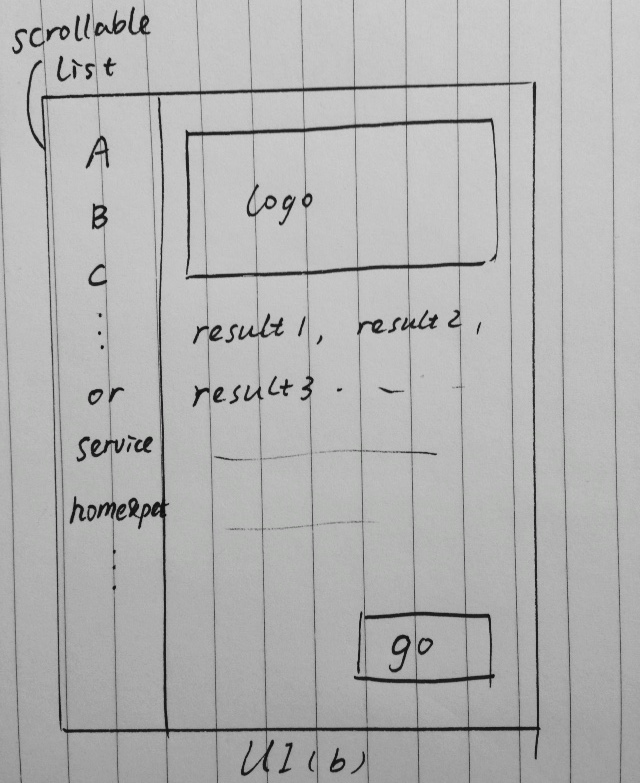 scrollable
list
A
B
C
or
service
home&pet
Logo
result 1, result 2,
result 3
go
UI(b)